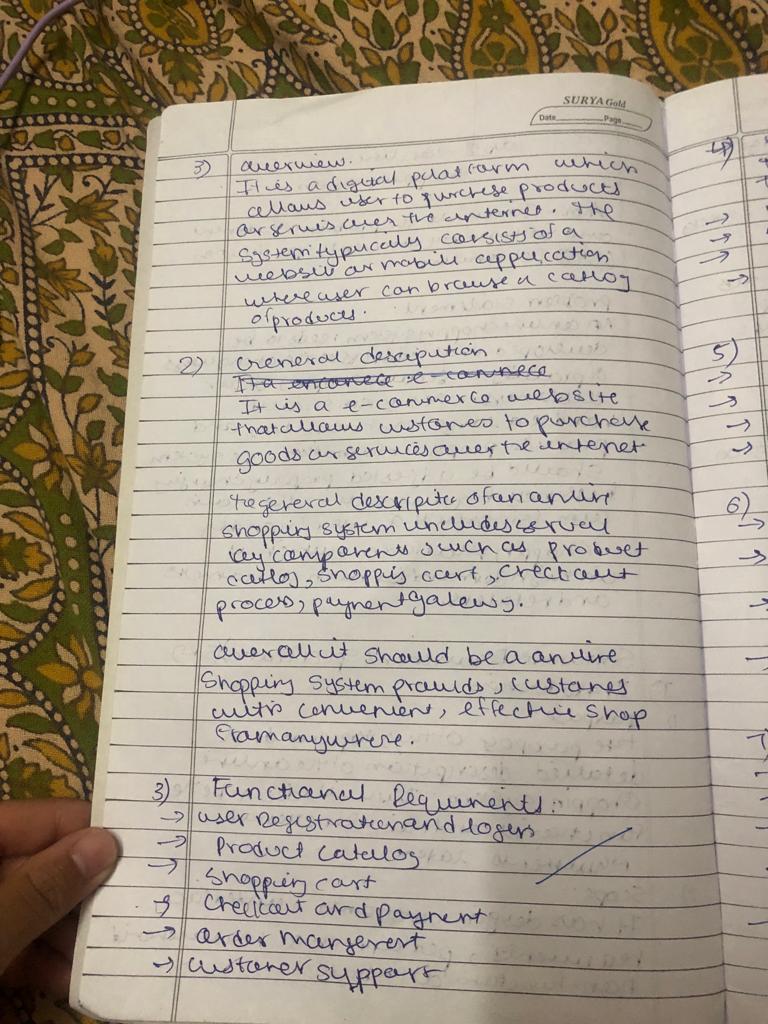 SURYA Gold
Date Page
3) overview.
It is a digital platform which
allows user to purchese products
or servis over the internet. The
System typically consists of a
website or mobile application
where user can browse a catlog
of products.
2) General descripution.
It a e-commece
It is a e-commerce website
that allows customes to purchase
goods or services over the internet
the general descripte of an online
shopping system includes sevral
key components such as product
catlog, shoppis cart, checkout
process, payment gatewy.
overall it should be a online
Shopping System provids, customes
with convenient, effective shop
from anywhere.
3) Functional Requirments:
→ user registration and logen
→ Product catalog
→ Shopping cart
→ Checkout and payment
→ order mangerent
→ customer support
4)
→
→
→
→
5)
→
→
→
→
6)
→
→
→
→
7)